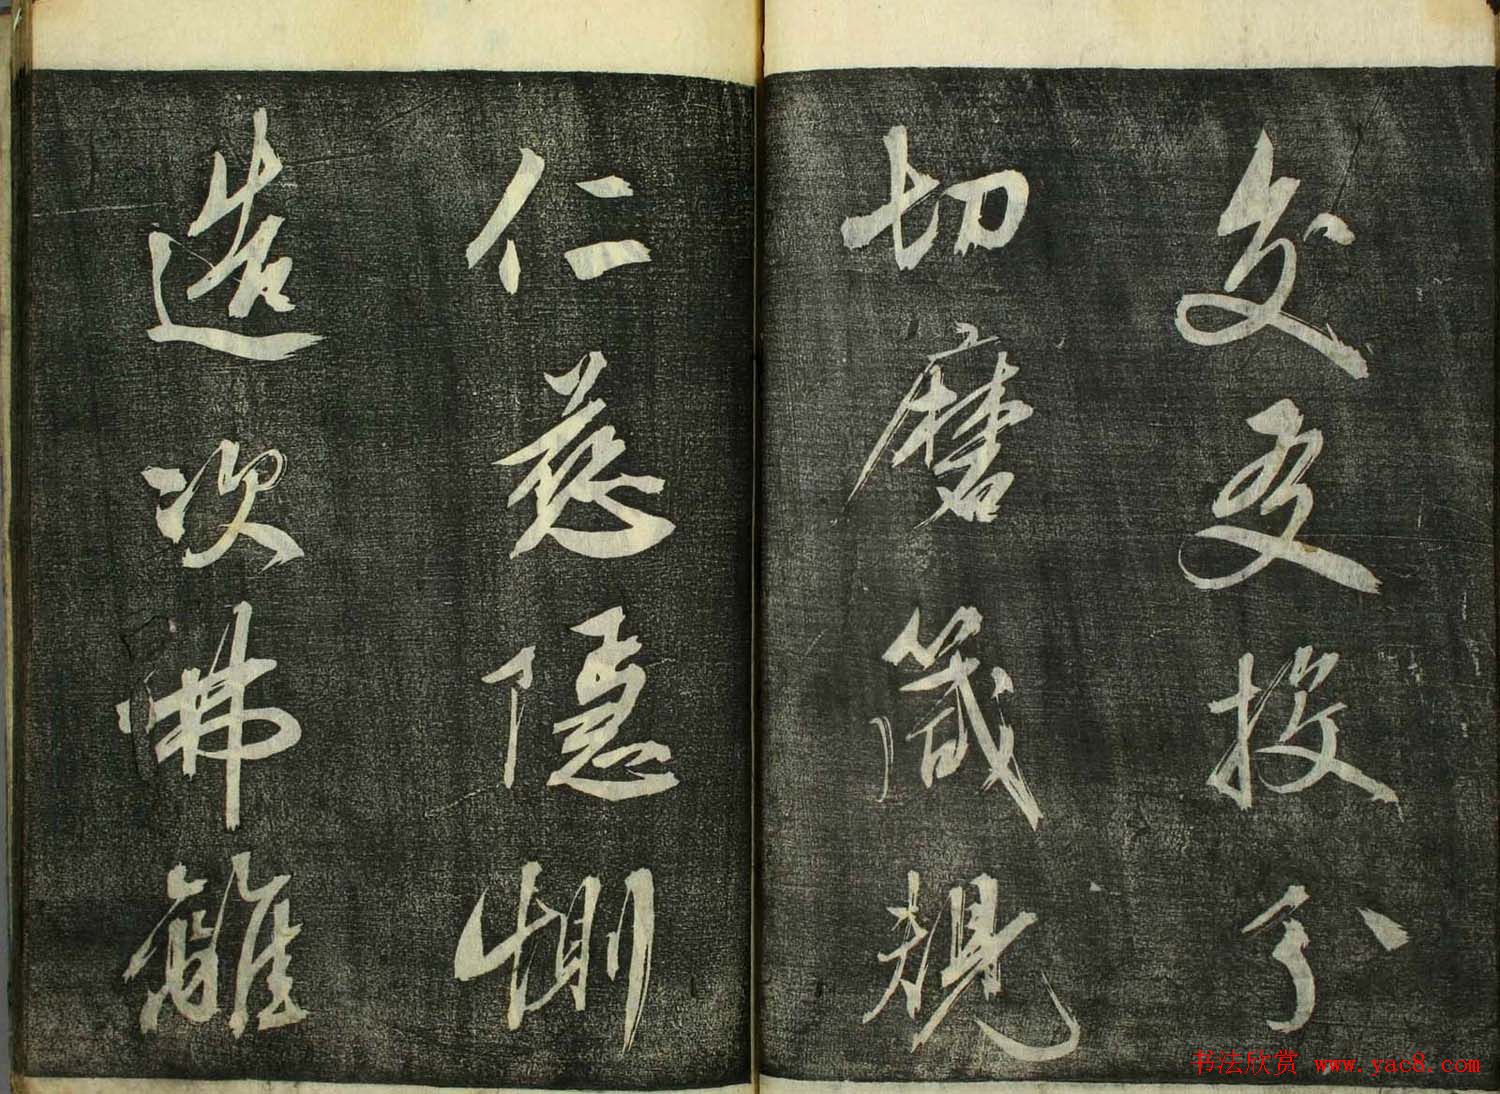 交友投分
切磨箴規
仁慈隱惻
造次弗離
书法欣赏 www.yac8.com